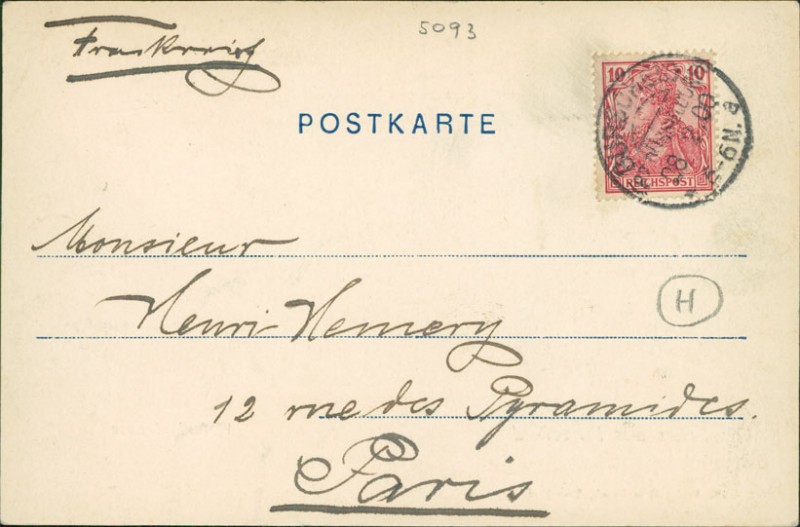 Frankreich
5093
POSTKARTE
10 10
REICHSPOST
5-6N. a
Monsieur
Henri Hemery
H
12 rue des Pyramides.
Paris